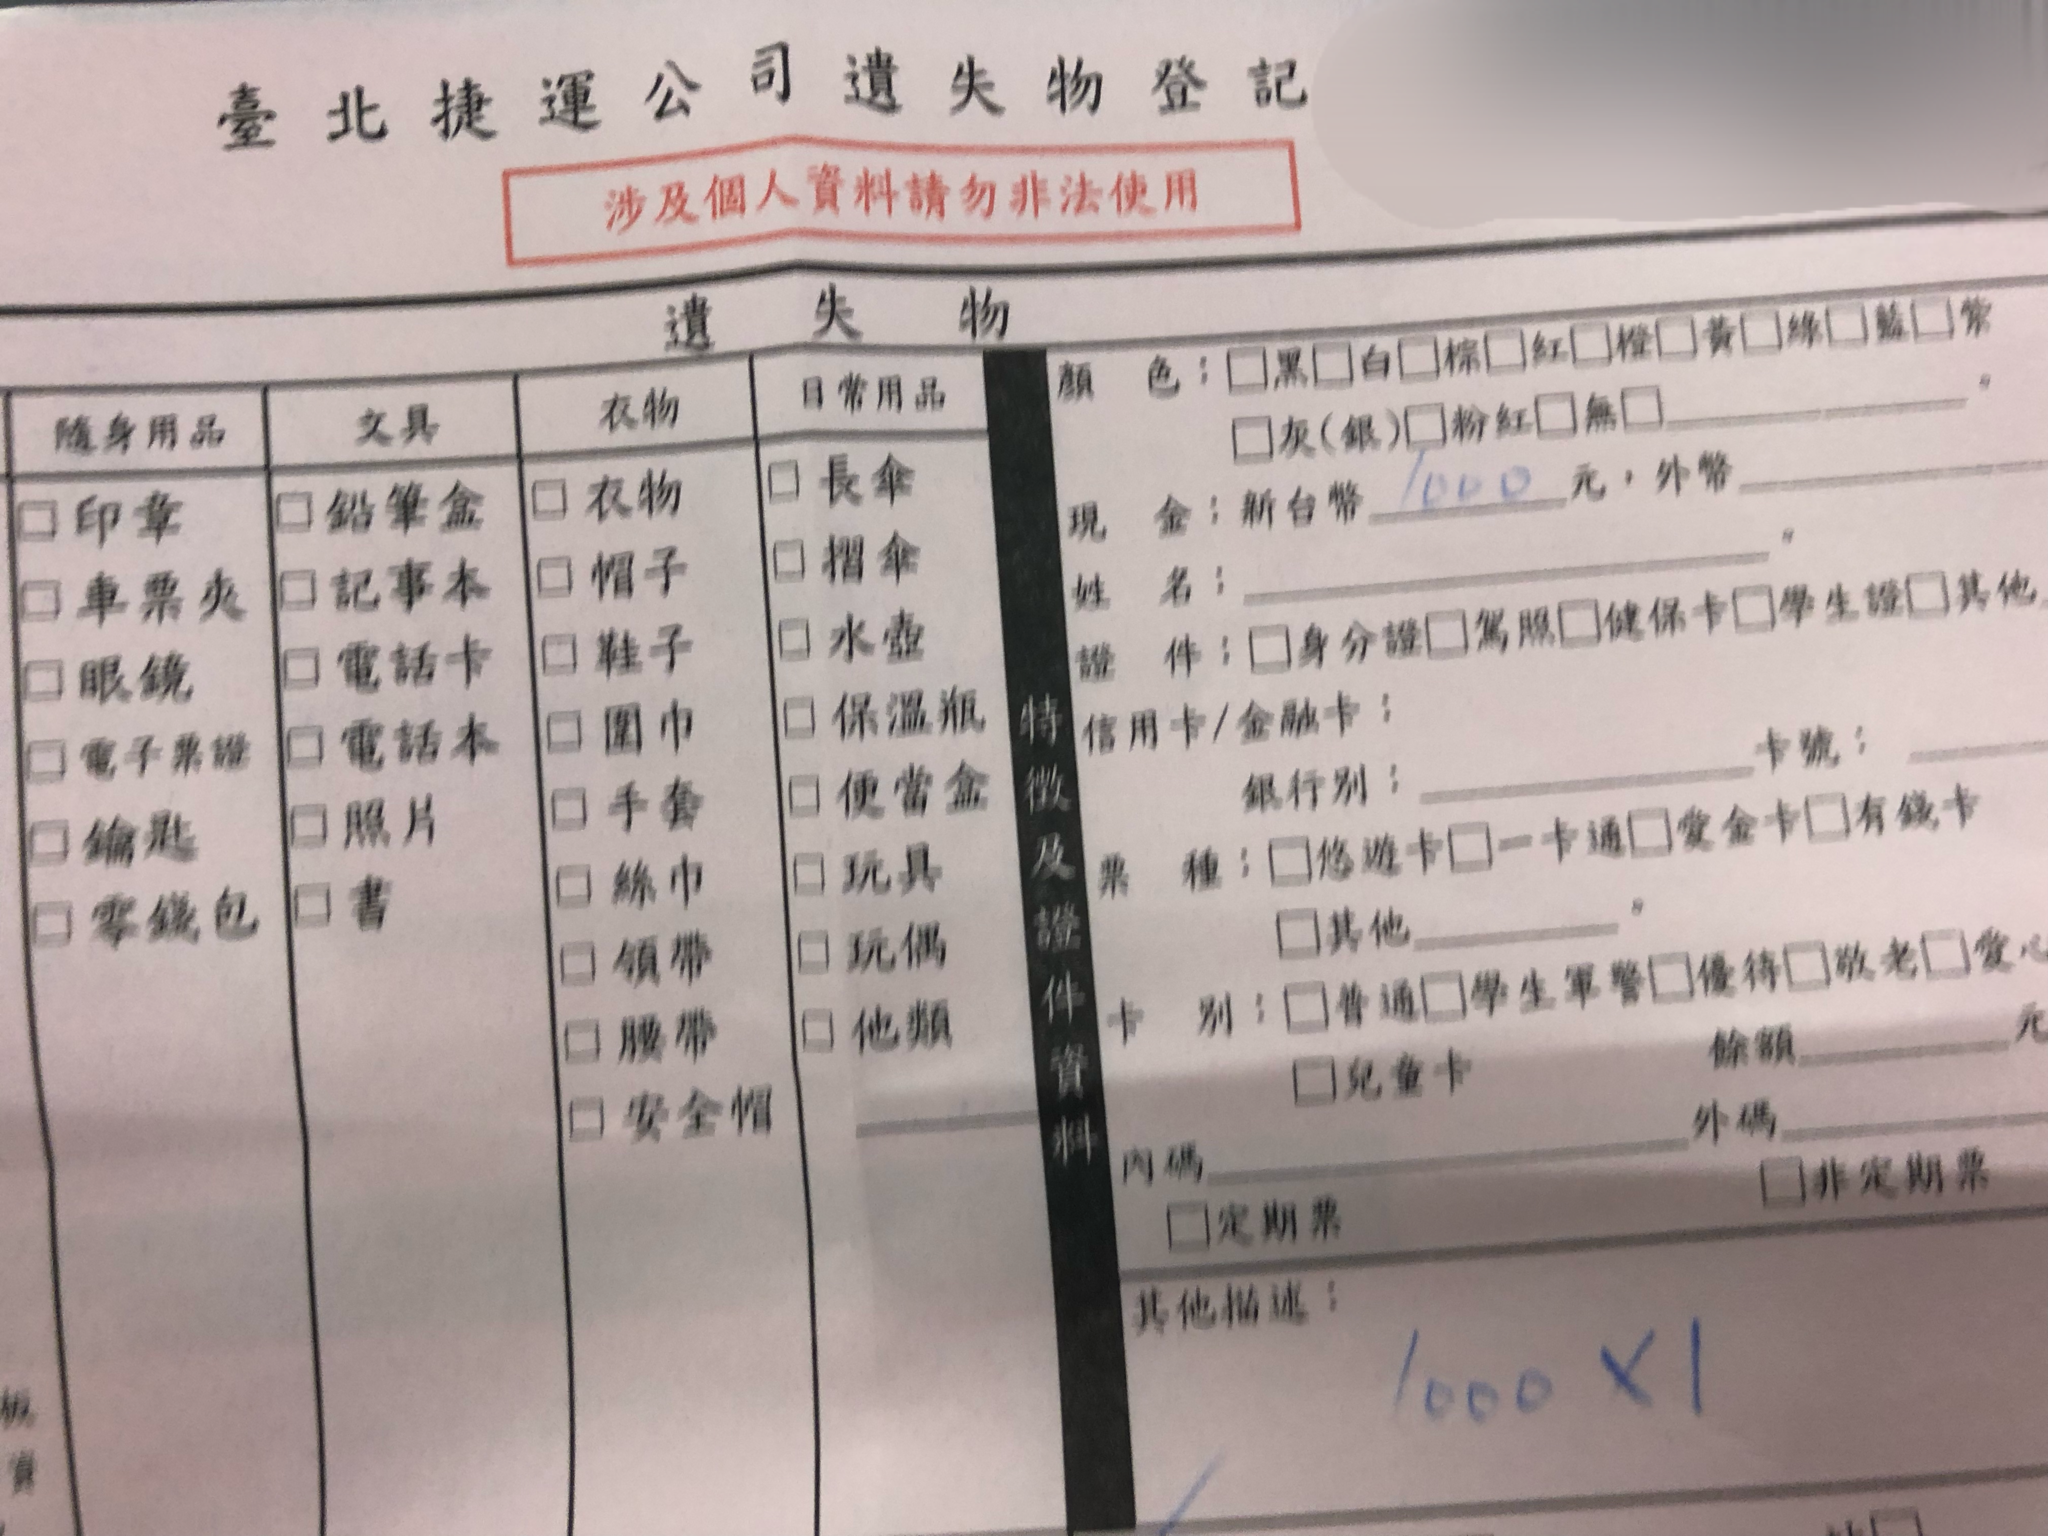 臺北捷運公司遺失物登記
涉及個人資料請勿非法使用
遺失物
隨身用品
□印章
□車票夾
□眼鏡
□電子票證
□鑰匙
□零錢包
文具
□鉛筆盒
□記事本
□電話卡
□電話本
□照片
□書
衣物
□衣物
□帽子
□鞋子
□圍巾
□手套
□絲巾
□領帶
□腰帶
□安全帽
日常用品
□長傘
□摺傘
□水壺
□保溫瓶
□便當盒
□玩具
□玩偶
□他類
特徵及證件資料
顏 色：□黑□白□棕□紅□橙□黃□綠□藍□紫
□灰(銀)□粉紅□無□________。
現 金：新台幣 1000 元，外幣________
姓 名：________。
證 件：□身分證□駕照□健保卡□學生證□其他
信用卡/金融卡：
銀行別：________卡號：____
票 種：□悠遊卡□一卡通□愛金卡□有錢卡
□其他________。
卡 別：□普通□學生軍警□優待□敬老□愛心
□兒童卡 餘額________元
內碼________外碼________
□定期票 □非定期票
其他描述：
1000 X 1
板